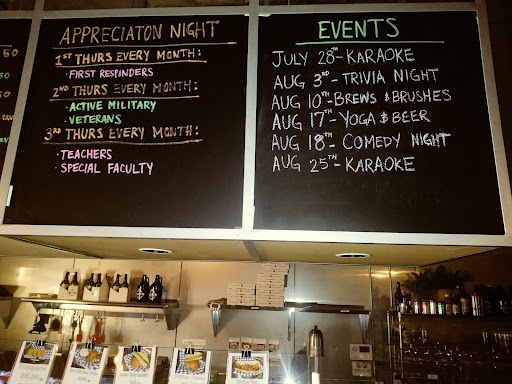 APPRECIATON NIGHT
1ST THURS EVERY MONTH:
· FIRST RESPINDERS
2ND THURS EVERY MONTH:
· ACTIVE MILITARY
· VETERANS
3RD THURS EVERY MONTH:
· TEACHERS
· SPECIAL FACULTY
EVENTS
JULY 28TH - KARAOKE
AUG 3RD - TRIVIA NIGHT
AUG 10TH - BREWS & BRUSHES
AUG 17TH - YOGA & BEER
AUG 18TH - COMEDY NIGHT
AUG 25TH - KARAOKE
50